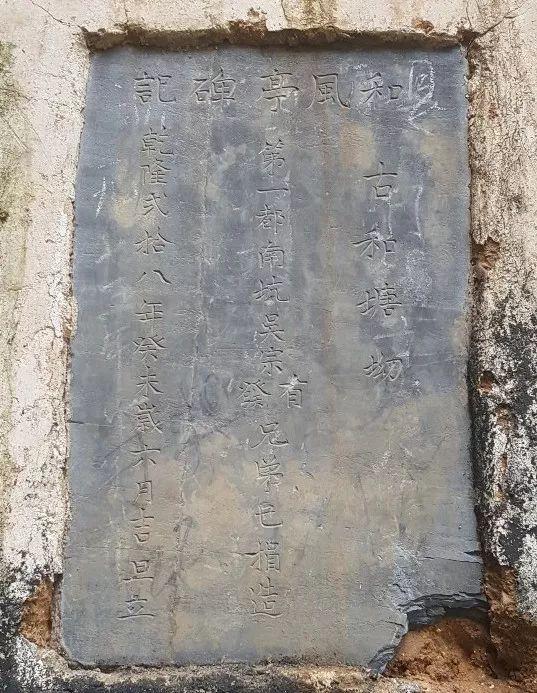 和風亭碑記
古和塘坳
第一都南坑吳宗有發兄弟包捐造
乾隆弍拾八年癸未歲六月吉旦立